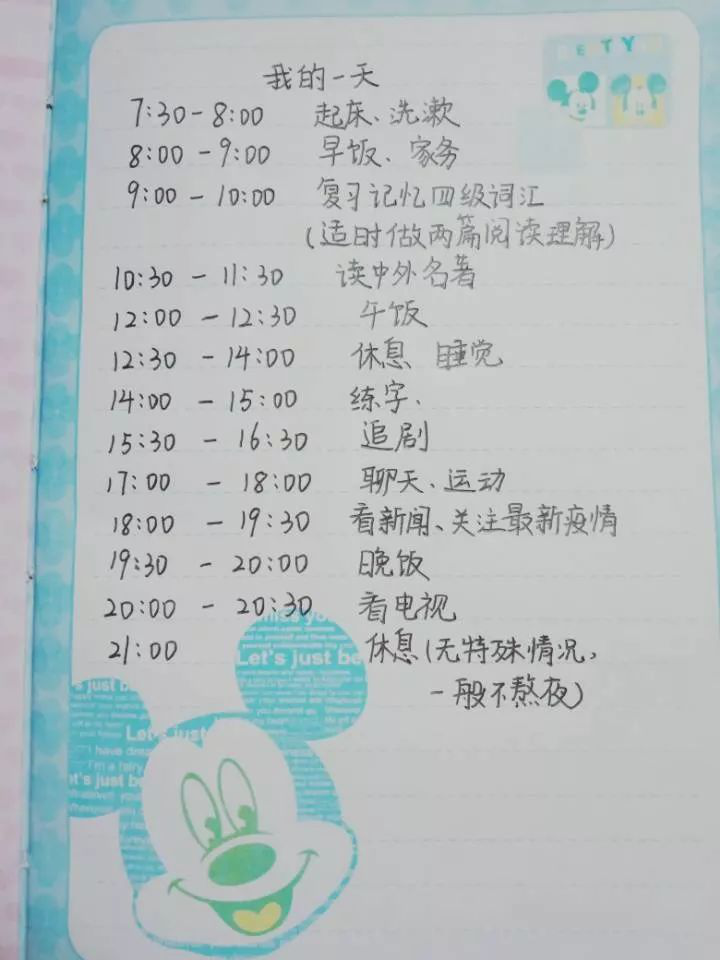 我的一天
7:30-8:00 起床、洗漱
8:00-9:00 早饭、家务
9:00-10:00 复习记忆四级词汇
(适时做两篇阅读理解)
10:30-11:30 读中外名著
12:00-12:30 午饭
12:30-14:00 休息 睡觉
14:00-15:00 练字.
15:30-16:30 追剧
17:00-18:00 聊天、运动
18:00-19:30 看新闻、关注最新疫情
19:30-20:00 晚饭
20:00-20:30 看电视
21:00 休息(无特殊情况,
一般不熬夜)
miss you
Let's just be
s just be
Let's just be
I have
I'm a fairy
Let's just be